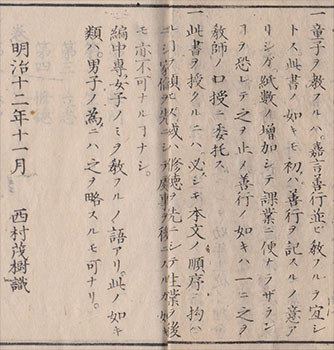 一童子ヲ教フルハ嘉言善行並ビ教フルヲ宜シ
トス此書ノ如キモ初ハ善行ヲ記スルノ意ア
リシガ紙數ノ増加シテ課業ニ便ナラザラン
ヿヲ恐レテ之ヲ止ム善行ノ如キハ一ニ之ヲ
教師ノ口授ニ委托ス
一此書ヲ授クルニハ必シモ本文ノ順序ニ拘ハ
ルヿヲ須ヒズ或ハ修徳ヲ先ニシテ生業ヲ後
ニシ家倫ヲ先ニシテ處事ヲ後ニスルガ如キ
モ亦不可ナルヿナシ。
編中專女子ノミヲ教フルノ語アリ。此ノ如キ
類ハ。男子ノ為ニハ之ヲ略スルモ可ナリ。
明治十二年十一月 西村茂樹識